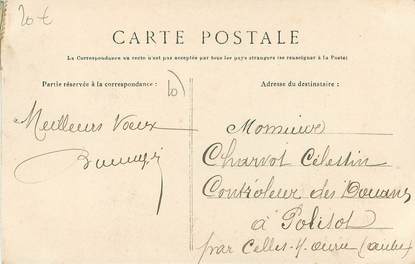 20 €
CARTE POSTALE
La Correspondance au recto n'est pas acceptée par tous les pays étrangers (se renseigner à la Poste)
Partie réservée à la correspondance :
Adresse du destinataire :
Meilleurs Voeux
Monsieur
Charvot Célestin
Contrôleur des Douanes
à Polisot
par Celles-s/-ource (aube)